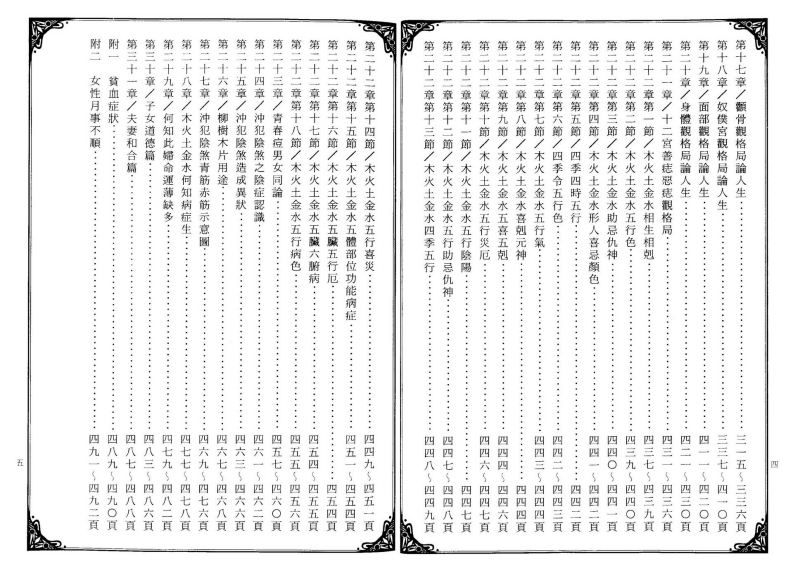 第十七章/顴骨觀格局論人生……三一五~三三六頁
第十八章/奴僕宮觀格局論人生……三三七~四一〇頁
第十九章/面部觀格局論人生……四一一~四二〇頁
第二十章/身體觀格局論人生……四二一~四三〇頁
第二十一章/十二宮善痣惡痣觀格局……四三一~四三六頁
第二十二章第一節/木火土金水相生相剋……四三七~四三九頁
第二十二章第二節/木火土金水五行色……四三九~四四〇頁
第二十二章第三節/木火土金水助忌仇神……四四〇~四四一頁
第二十二章第四節/木火土金水形人喜忌顏色……四四一~四四二頁
第二十二章第五節/四季四時五行……四四二頁
第二十二章第六節/四季令五行色……四四二~四四三頁
第二十二章第七節/木火土金水五行氣……四四三~四四四頁
第二十二章第八節/木火土金水喜剋元神……四四四頁
第二十二章第九節/木火土金水五喜五剋……四四四~四四六頁
第二十二章第十節/木火土金水五行災厄……四四六~四四七頁
第二十二章第十一節/木火土金水五行陰陽……四四七頁
第二十二章第十二節/木火土金水五行助忌仇神……四四七~四四八頁
第二十二章第十三節/木火土金水四季五行……四四八~四四九頁
四
第二十二章第十四節/木火土金水五行喜災……四四九~四五一頁
第二十二章第十五節/木火土金水五體部位功能病症……四五一~四五四頁
第二十二章第十六節/木火土金水五臟五行厄……四五四頁
第二十二章第十七節/木火土金水五臟六腑病……四五四~四五五頁
第二十二章第十八節/木火土金水五行病色……四五五~四五六頁
第二十三章/青春痘男女同論……四五七~四六〇頁
第二十四章/沖犯陰煞之陰症認識……四六一~四六二頁
第二十五章/沖犯陰煞造成異狀……四六三~四六六頁
第二十六章/柳樹木片用途……四六七~四六八頁
第二十七章/沖犯陰煞青筋赤筋示意圖……四六九~四七六頁
第二十八章/木火土金水何知病症生……四七七~四七八頁
第二十九章/何知此婦命運薄缺多……四七九~四八二頁
第三十章/子女道德篇……四八三~四八六頁
第三十一章/夫妻和合篇……四八七~四八八頁
附一 貧血症狀……四八九~四九〇頁
附二 女性月事不順……四九一~四九二頁
五